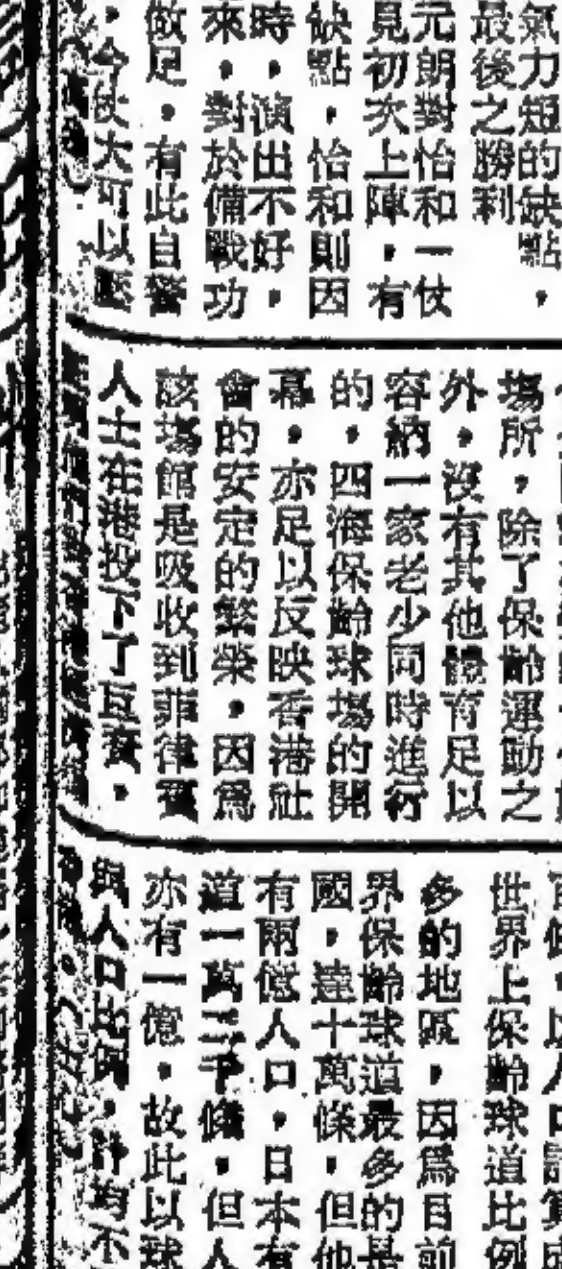 氣力短的缺點,
最後之勝利
元朗對怡和一仗
見初次上陣,有
缺點,怡和則因
時,演出不好,
來,對於備戰功
做足,有此自警
,今仗大可以壓
塲所,除了保齡運動之
外,沒有其他體育足以
容納一家老少同時進行
的,四海保齡球塲的開
幕,亦足以反映香港社
會的安定的繁榮,因爲
該塲館是吸收到菲律賓
人士在港投下了互資,
世界上保齡球道比例
多的地區,因爲目前
界保齡球道最多的是
國,達十萬條,但他
有兩億人口,日本有
道一萬二千條,但人
亦有一億,故此以球
與人口比例,計均不